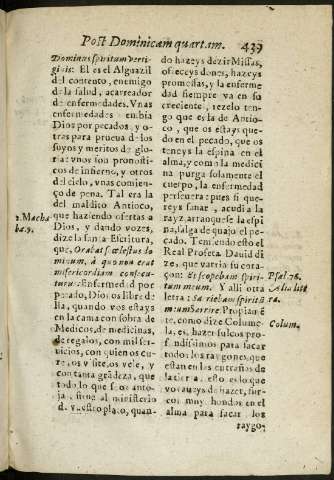 Post Dominicam quartam. 439
Dominus spiritum verti-
ginis: El es el Alguazil
del contento, enemigo
de la salud, acarreador
de enfermedades. Vnas
enfermedades embia
Dios por pecados, y o-
tras para prueua de los
suyos y meritos de glo-
ria: vnos son pronosti-
cos de infierno, y otros
del cielo, vnas comien-
ço de pena. Tal era la
del maldito Antioco,
que haziendo ofertas a
Dios, y dando vozes,
dize la santa Escritura,
que, Orabat scelestus do-
minum, à quo non erat
misericordiam consecu-
turus: Enfermedad por
pecado, Dios os libre de
lla, quando vos estays
en la cama con sobra de
Medicos, de medicinas,
de regalos, con mil ser-
uicios, con quien os cu-
re, os visite, os vele, y
con tanta grãdeza, que
todo lo que se os anto-
ja, sirue al ministerio
d. vuestro plato, quan-
2. Macha
bæ. 9.
do hazeys dezir Missas,
ofreceys dones, hazeys
promessas, y la enferme
dad siempre va en su
creciente, rezelo ten-
go que es la de Antio-
co, que os estays que-
do en el pecado, que os
teneys la espina en el
alma, y como la medici
na purga solamente el
cuerpo, la enfermedad
perseuera: pues si que-
reys sanar, acudi a la
rayz, arranquese la espi
na, salga de quajo el pe-
cado. Temiendo esto el
Real Profeta Dauid di
ze, que varria su cora-
çon: Et scopebam spiri-
tum meum. Y alli otra
letra: Sariebam spiritũ
meum
Propian ē
te, como dize Colume-
la, es, hazer sulcos pro-
fundissimos para sacar
todos los raygones que
estan en las entrañas de
la tierra: esto es lo que
vo
de hazer, sur-
cos muy hondos en el
alma para sacar los
raygo-
Psal. 76.
Alia litt
ra.
Colum.